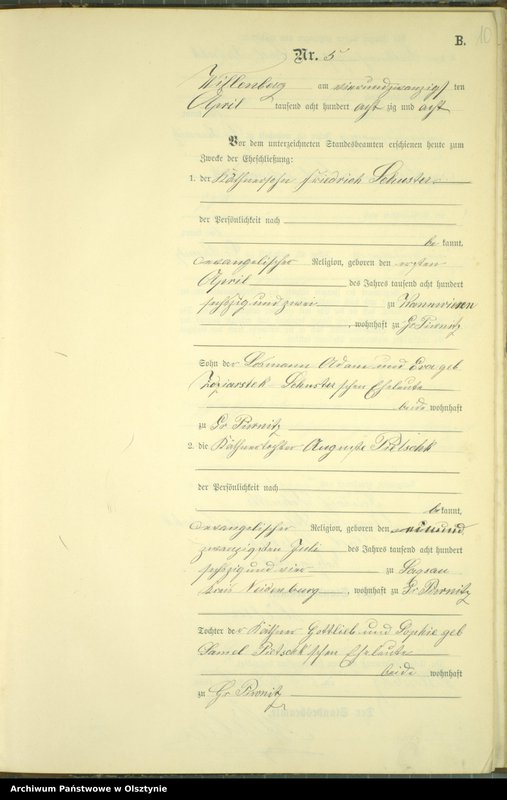 B. 10
Nr. 5
Willenberg am vierundzwanzigsten
April tausend acht hundert acht zig und acht
Vor dem unterzeichneten Standesbeamten erschienen heute zum
Zwecke der Eheschließung:
1. der Käthnersohn Friedrich Schuster
der Persönlichkeit nach
be kannt,
evangelischer Religion, geboren den ersten
April des Jahres tausend acht hundert
sechszig und zwei zu Kannwiesen
, wohnhaft zu Gr Piwnitz
Sohn der Losmann Adam und Eva geb
Schuster'schen Eheleute
beide wohnhaft
zu Gr Piwnitz
2. die Käthnertochter Auguste
der Persönlichkeit nach
be kannt,
evangelischer Religion, geboren den neunund
zwanzigsten Juli des Jahres tausend acht hundert
sechszig und vier zu Sagsau
Kreis Neidenburg, wohnhaft zu Gr Piwnitz
Tochter der Käthner Gottlieb und Sophie geb
'schen Eheleute
beide wohnhaft
zu Gr Piwnitz
Archiwum Państwowe w Olsztynie